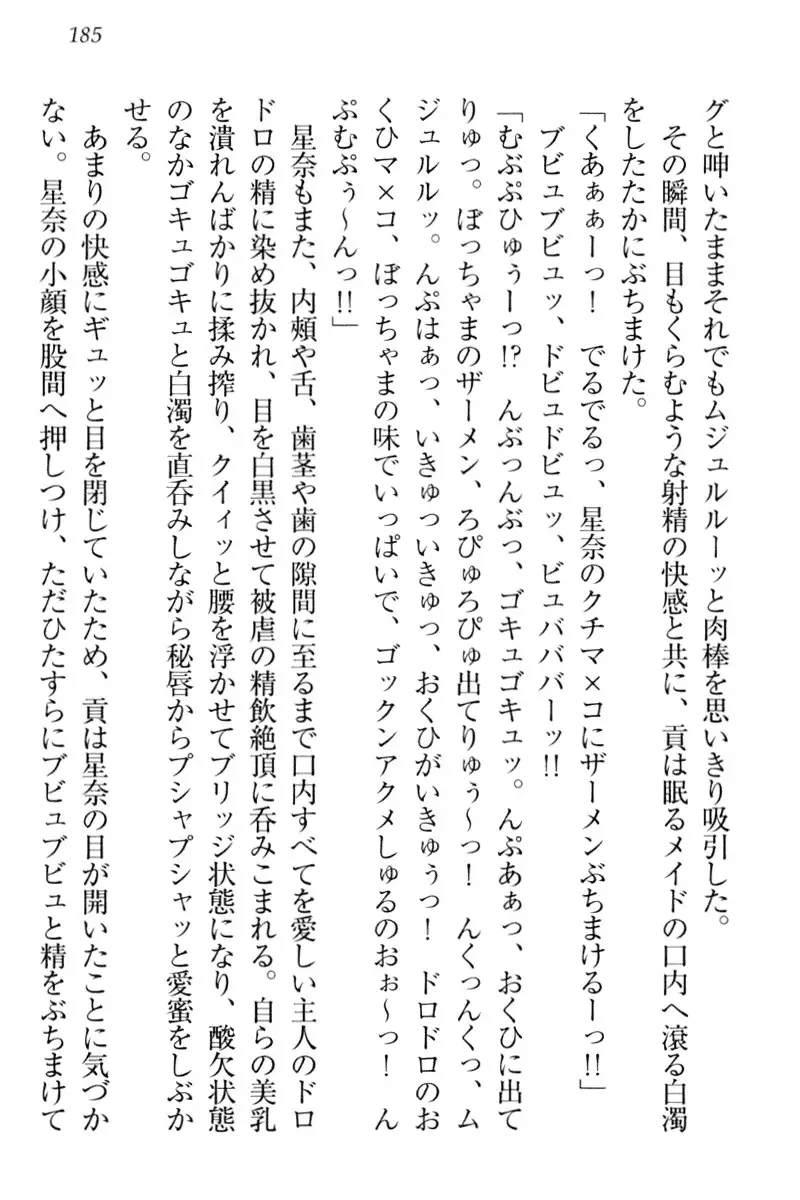 185
グと呻いたままそれでもムジュルルーッと肉棒を思いきり吸引した。
その瞬間、目もくらむような射精の快感と共に、貢は眠るメイドの口内へ滾る白濁
をしたたかにぶちまけた。
「くあぁぁーっ！　でるでるっ、星奈のクチマ×コにザーメンぶちまけるーっ!!」
ブビュブビュッ、ドビュドビュッ、ビュバババーッ!!
「むぶぷひゅぅーっ!?　んぶっんぶっ、ゴキュゴキュッ。んぷあぁっ、おくひに出て
りゅっ。ぼっちゃまのザーメン、ろぴゅろぴゅ出てりゅぅ〜っ！　んくっんくっ、ム
ジュルルッ。んぷはぁっ、いきゅっいきゅっ、おくひがいきゅぅっ！　ドロドロのお
くひマ×コ、ぼっちゃまの味でいっぱいで、ゴックンアクメしゅるのおぉ〜っ！　ん
ぷむぷぅ〜んっ!!」
星奈もまた、内頬や舌、歯茎や歯の隙間に至るまで口内すべてを愛しい主人のドロ
ドロの精に染め抜かれ、目を白黒させて被虐の精飲絶頂に呑みこまれる。自らの美乳
を潰れんばかりに揉み搾り、クイィッと腰を浮かせてブリッジ状態になり、酸欠状態
のなかゴキュゴキュと白濁を直呑みしながら秘唇からプシャプシャッと愛蜜をしぶか
せる。
あまりの快感にギュッと目を閉じていたため、貢は星奈の目が開いたことに気づか
ない。星奈の小顔を股間へ押しつけ、ただひたすらにブビュブビュと精をぶちまけて